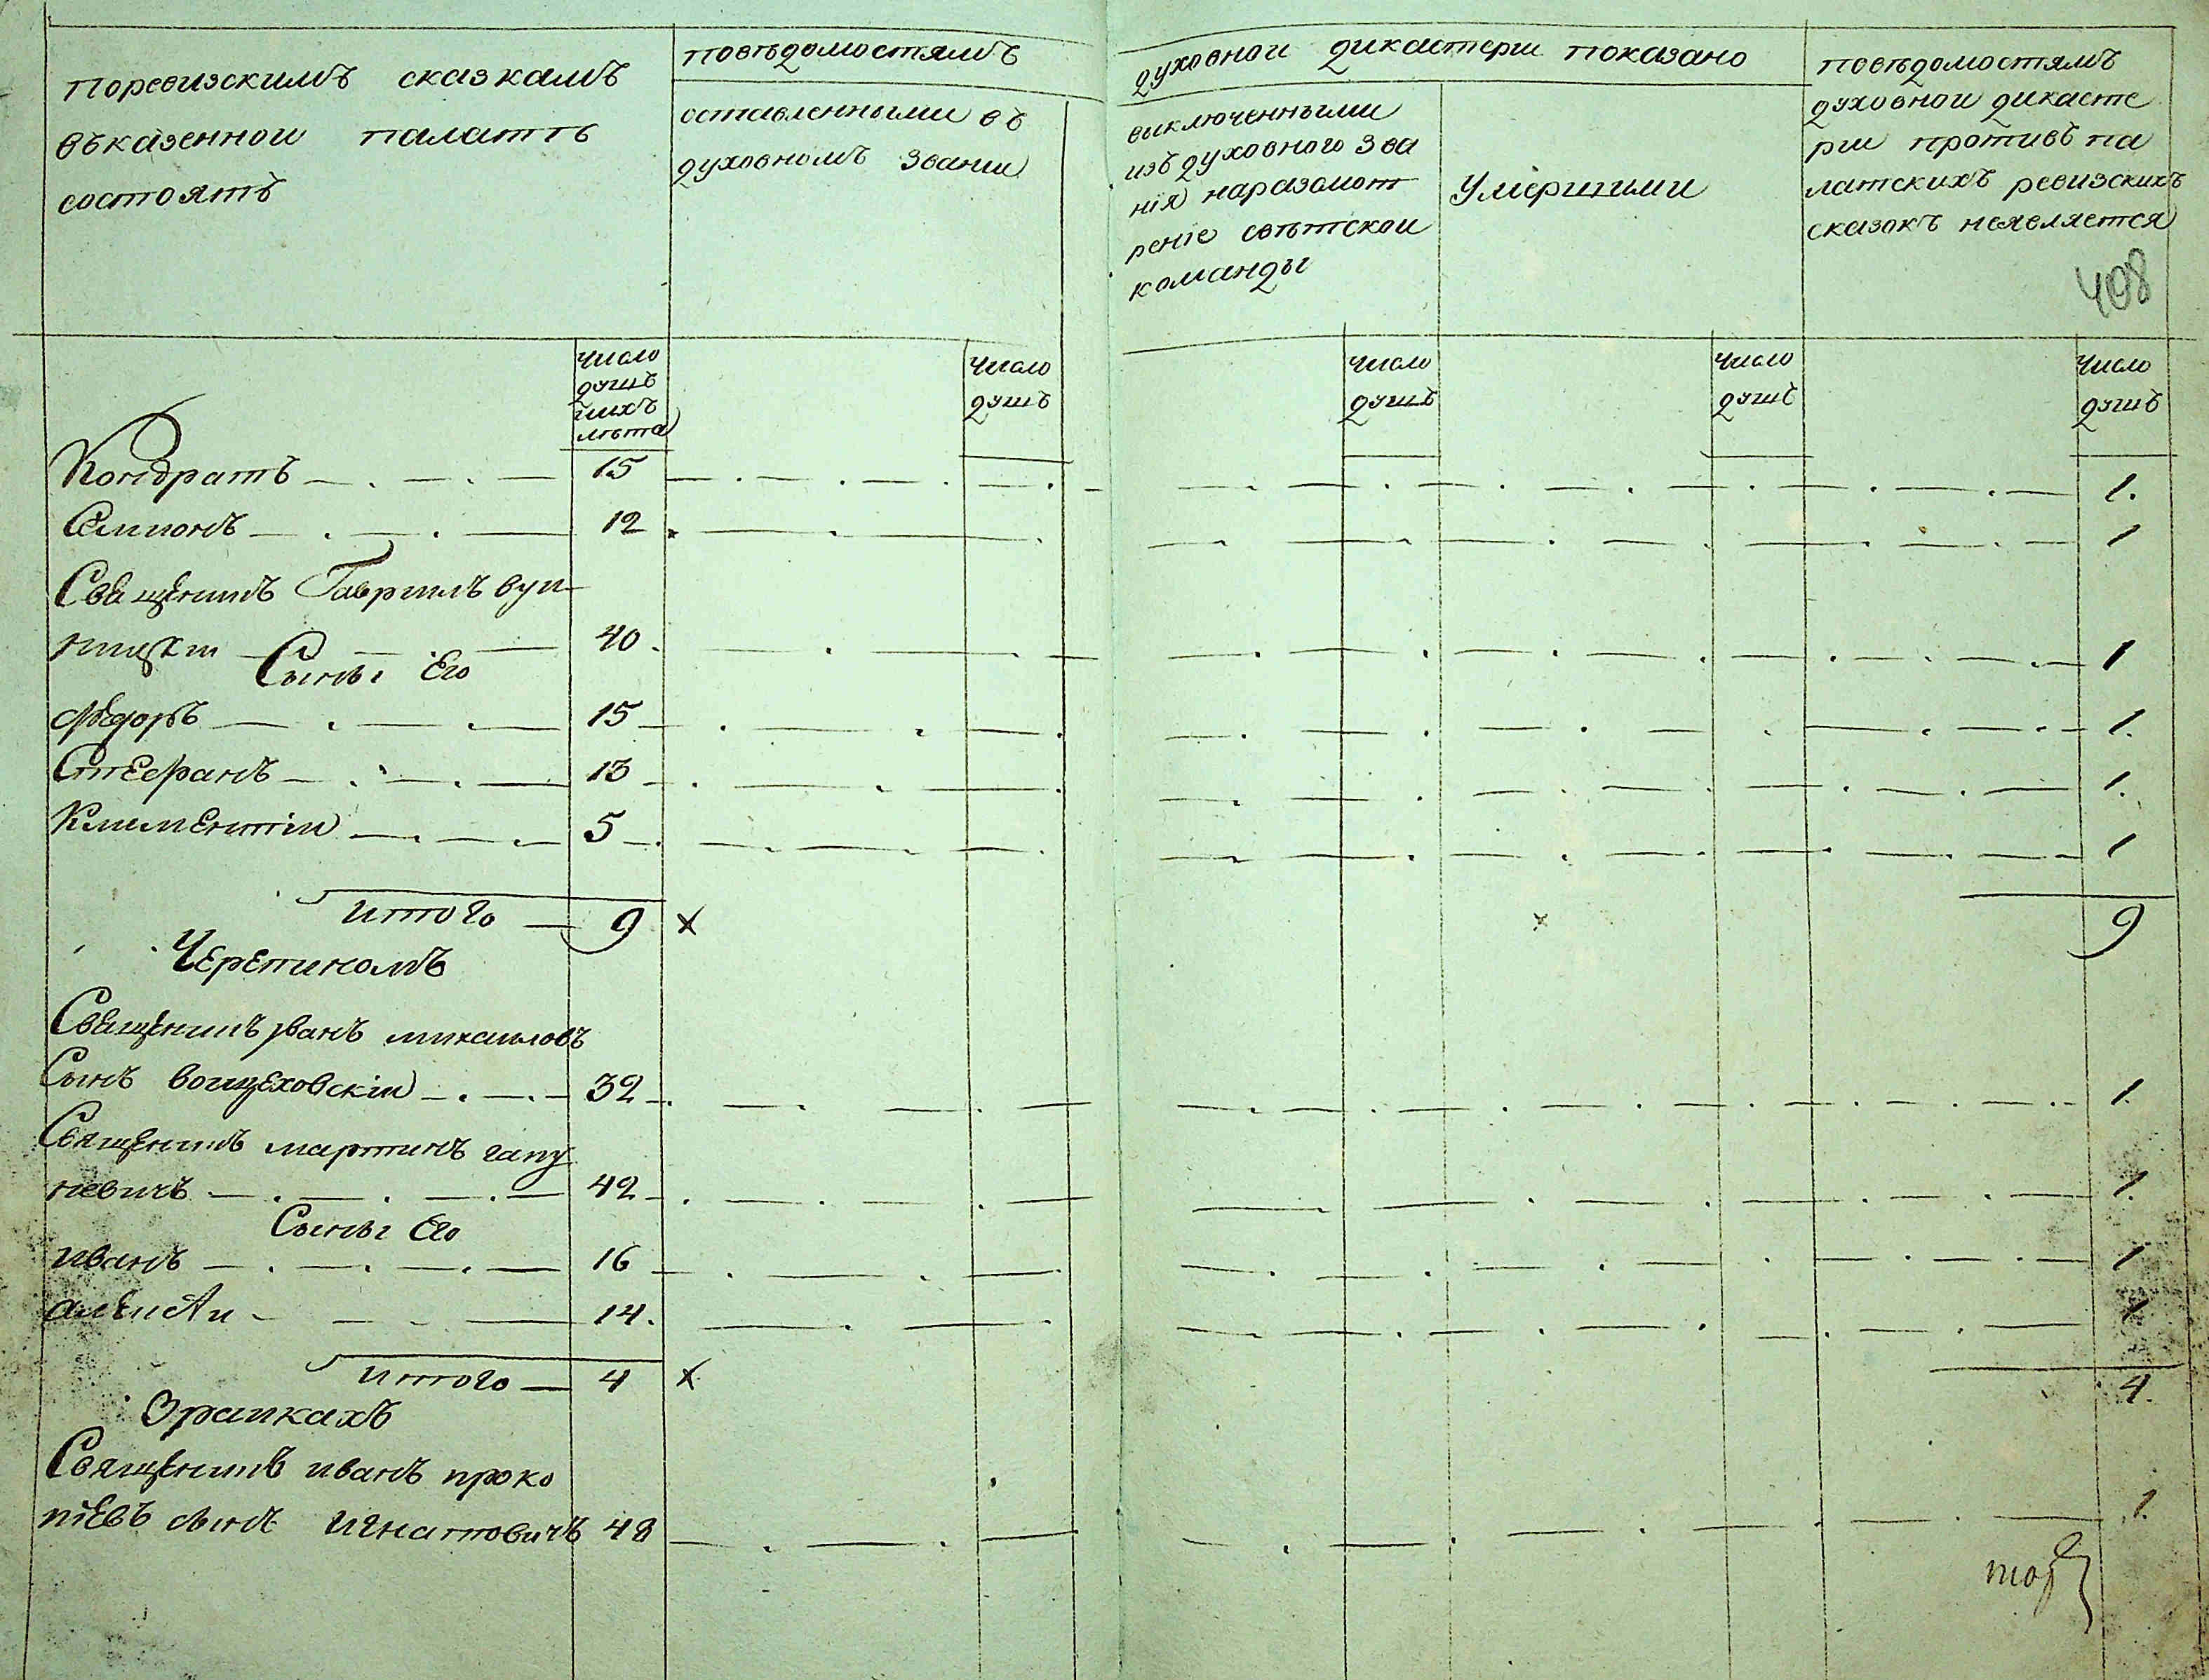 поревизскимъ сказкамъ
въказеннои палатѣ
состоятъ
повѣдомостямъ
оставленными въ
духовномъ звании
духовнои дикастерш показано
выключенными
изъ духовного зва
нїя наразсмот
ренїе свѣтскои
команды
Умершими
повѣдомостямъ
духовнои дикасте
рш противъ па
латскихъ ревизскихъ
сказокъ неявляется
408
число
душъ
иихъ
лѣта
число
душъ
число
душъ
число
душъ
число
душъ
Кондратъ 15 1.
Симионъ 12 1
Священикъ Гавриилъ
40 1
Сыны Его
Федоръ 15 1.
Стефанъ 13 1.
Климентїи 5 1
итого 9 х х 9
Черепиномъ
Священикъ Иванъ михаиловъ
Сынъ воицеховскїи 32 1
Священикъ мартинъ гапу
невичъ 42 1.
Сыны Его
иванъ 16 1
алеѯѣи 14. 1
итого 4 х 4.
Зраикахъ
Священикъ иванъ проко
пїевъ сынъ игнатовичъ 48 1.